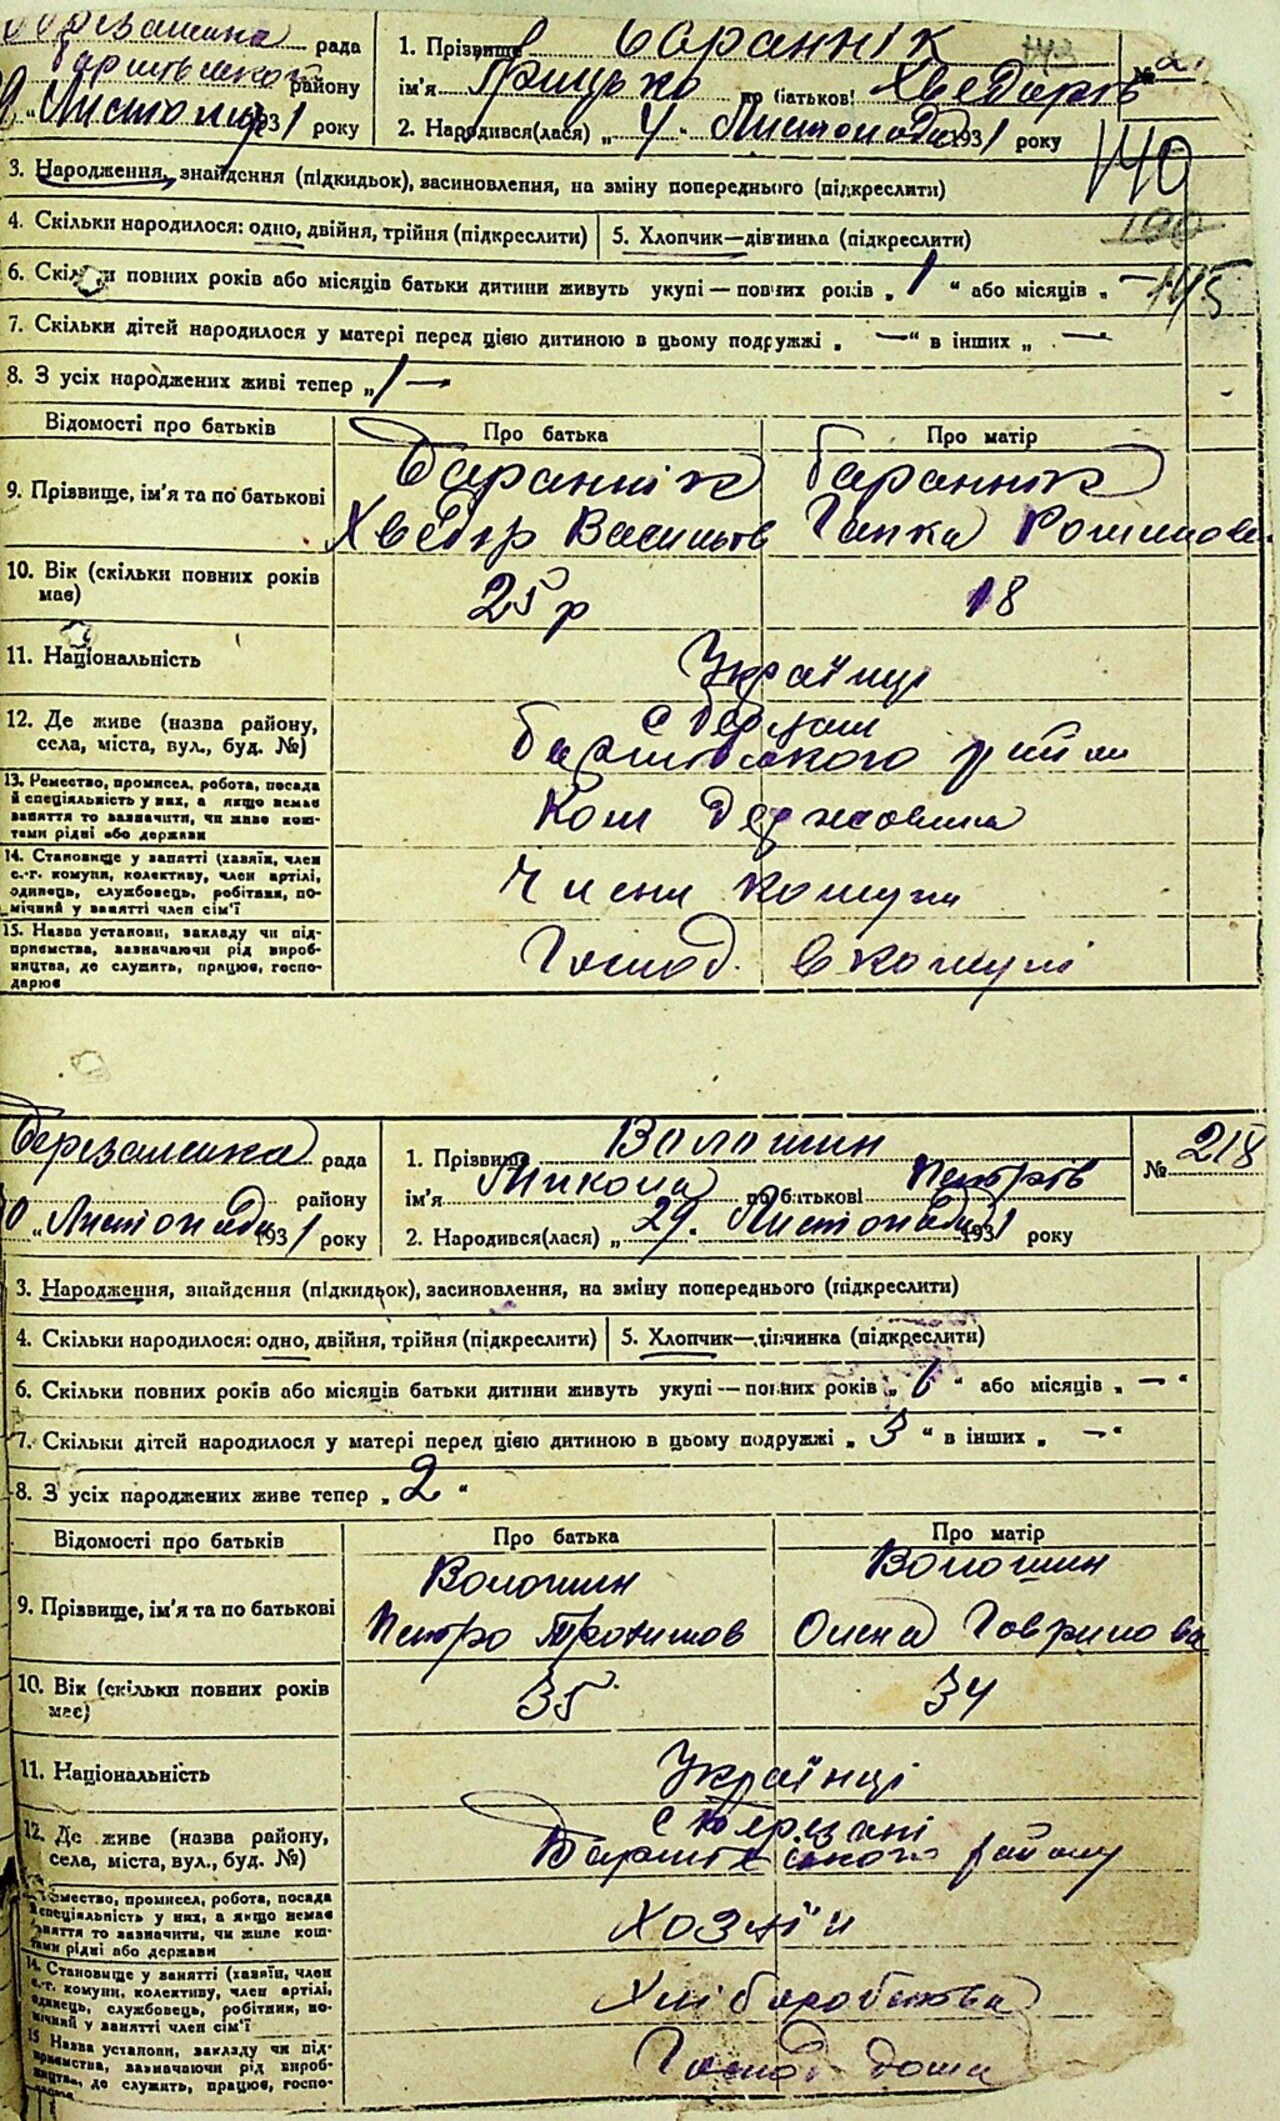 рада
району
Листопада 1931 року
1. Прізвище Бараннік
ім'я Грицько по батькові Хведорів №
2. Народився(лася) „4" Листопада 1931 року
140
3. Народження, знайдення (підкидьок), засиновлення, на зміну попереднього (підкреслити)
4. Скільки народилося: одно, двійня, трійня (підкреслити)
5. Хлопчик—дівчинка (підкреслити)
6. Скільки повних років або місяців батьки дитини живуть укупі — повних років „1" або місяців „—
145
7. Скільки дітей народилося у матері перед цією дитиною в цьому подружжі „—" в інших „—
8. З усіх народжених живі тепер „1 —
Відомості про батьків
Про батька
Про матір
9. Прізвище, ім'я та по батькові
Бараннік
Хведір Васильов
Бараннік
Ганка
10. Вік (скільки повних років
має)
25 р
18
11. Національність
Українці
12. Де живе (назва району,
села, міста, вул., буд. №)
с Березані
району
13. Ремество, промисел, робота, посада
й спеціяльність у них, а якщо немає
заняття то зазначити, чи живе кош-
тами рідні або держави
14. Становище у занятті (хазяїн, член
с.-г. комуни, колективу, член артілі,
одинець, службовець, робітник, по-
мічний у занятті член сім'ї
Члени комуни
15. Назва установи, закладу чи під-
приємства, зазначаючи рід вироб-
ництва, де служить, працює, госпо-
дарює
Господ. в комуні
Березанська рада
району
„Листопада 1931 року
1. Прізвище Волошин
ім'я Микола по батькові Петрів
№ 218
2. Народився(лася) „29. Листопада 1931 року
3. Народження, знайдення (підкидьок), засиновлення, на зміну попереднього (підкреслити)
4. Скільки народилося: одно, двійня, трійня (підкреслити)
5. Хлопчик—дівчинка (підкреслити)
6. Скільки повних років або місяців батьки дитини живуть укупі — повних років „6" або місяців „—"
7. Скільки дітей народилося у матері перед цією дитиною в цьому подружжі „3" в інших „—"
8. З усіх народжених живе тепер „2"
Відомості про батьків
Про батька
Про матір
9. Прізвище, ім'я та по батькові
Волошин
Петро Трохимов
Волошин
Олена Гаврилова
10. Вік (скільки повних років
має)
35
34
11. Національність
Українці
12. Де живе (назва району,
села, міста, вул., буд. №)
с Березані
району
Ремество, промисел, робота, посада
й спеціяльність у них, а якщо немає
заняття то зазначити, чи живе кош-
тами рідні або держави
Хозяїн
14. Становище у занятті (хазяїн, член
с.-г. комуни, колективу, член артілі,
одинець, службовець, робітник, по-
мічний у занятті член сім'ї
Хліборобства
15 Назва установи, закладу чи під-
приємства, зазначаючи рід вироб-
ництва, де служить, працює, госпо-
дарює
Господ дома